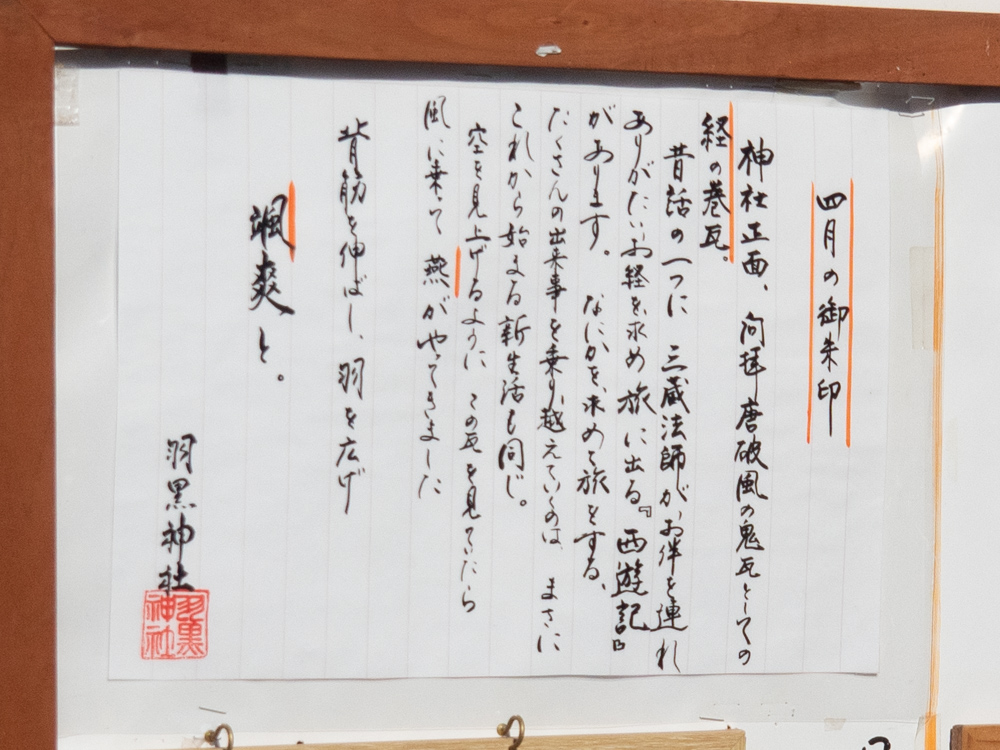 四月の御朱印
神社正面、向拝唐破風の鬼瓦としての
経の巻瓦。
昔話の一つに 三蔵法師がお伴を連れ
ありがたいお経を求め旅に出る『西遊記』
があります。 なにかを求めて旅をする、
たくさんの出来事を乗り越えていくのは まさに
これから始まる新生活も同じ。
空を見上げるように この瓦を見ていたら
風に乗って 燕がやってきました
背筋を伸ばし、羽を広げ
颯爽と。
羽黒神社
羽黒
神社